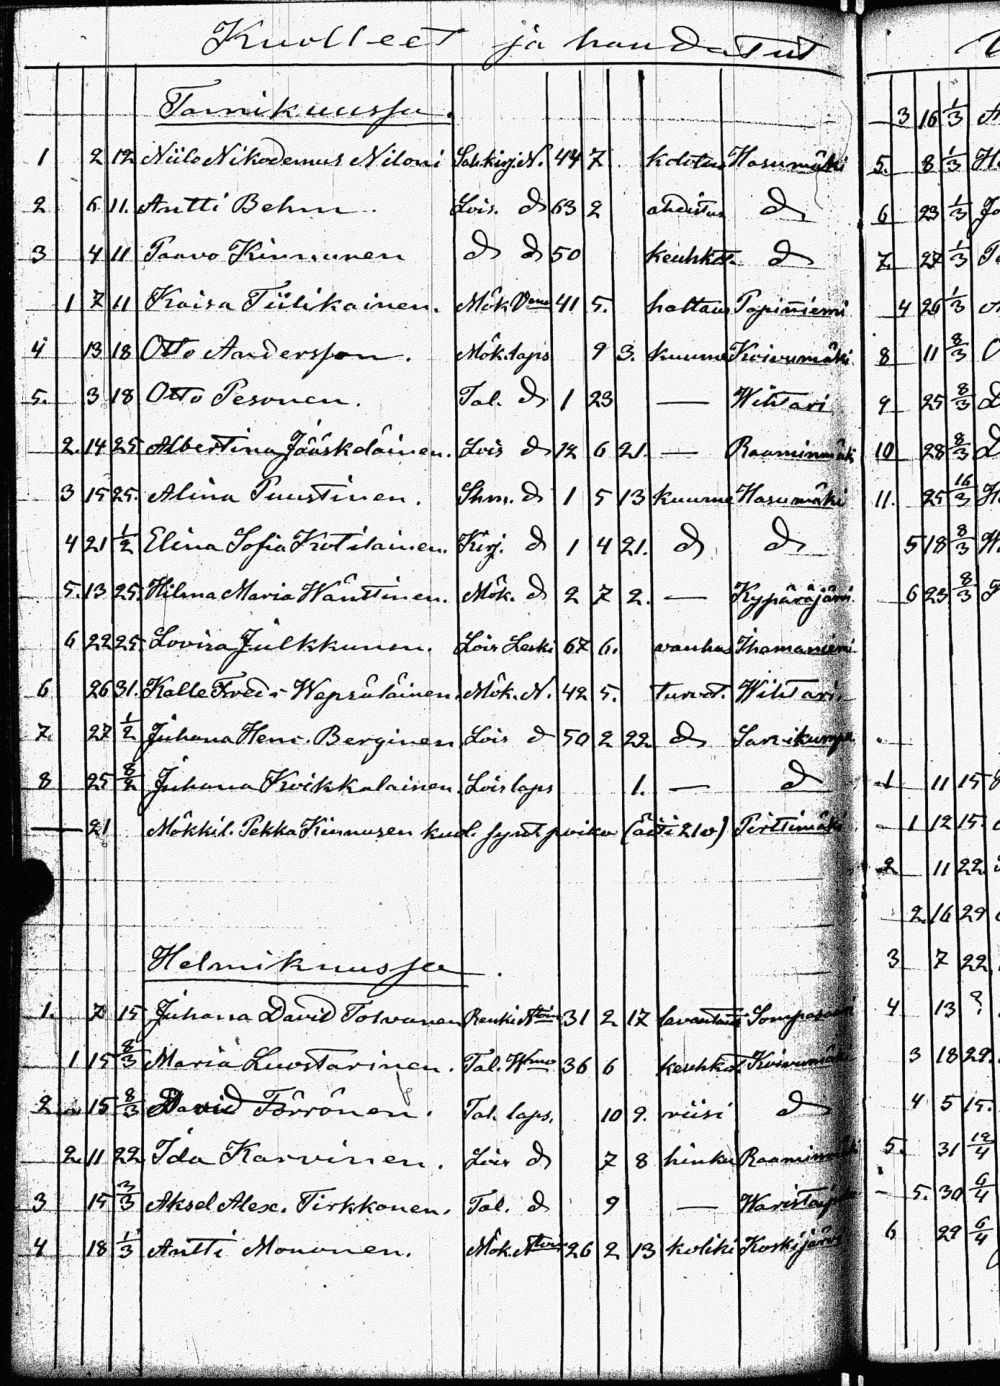 Kuolleet ja haudatut
Tammikuussa.
1 2 12 Niilo Nikodemus Niloni Sah.kirj. N. 44 7 kolotus Hasumäki
2 6 11. Antti Behm. Lois. d 63 2 ahdistus d
3 4 11 Paavo Kinnunen d d 50 keuhkot. d
1 7 11 Kaisa Tiilikainen. Mök. 41 5. haltaus Papinniemi
4 13 18 Otto Andersson. Mök. laps 9 3. kuume Koivumäki
5. 3 18 Otto Pesonen. Tal. d 1 23 — Wihtari
2. 14 25 Albertina Jääskeläinen. Lois d 12 6 21. — Raaminmäki
3 15 25. Alina Puustinen. d 1 5 13 kuume Hasumäki
4 21 1/2 Elina Sofia Kotilainen. Kirj. d 1 4 21. d d
5. 13 25. Hilma Maria Wänttinen. Mök. d 2 7 2. — Kypäräjärvi
6 22 25. Lovisa Julkkunen. Lois Leski 67 6. vanhus Ihamaniemi
6 26 31. Kalle Fredr Wepsäläinen. Mök. N. 42 5. turvot. Wihtari
7. 27 1/2 Juhana Henr. Berginen Lois d 50 2 22 d Sarvikumpu
8 25 8/2 Juhana Koikkalainen. Lois laps 1. — d
— 21 Mökkil. Pekka Kinnusen kuol. synt. poika (Äiti 21v) Perttimäki
Helmikuussa.
1. 7 15 Juhana David Tolvanen Renki 31 2 17 lavantauti
1 15 8/3 Maria Luostarinen. Tal. 36 6 keuhkot. Koivumäki
2 15 8/3 David Törrönen. Tal. laps. 10 9. riisi d
2. 11 22 Ida Karvinen. Lois d 7 8 hinku Raaminmäki
3 15 3/3 Aksel Alex. Tirkkonen. Tal. d 9 — Waristaipale
4 18 1/3 Antti Mononen. Mök. 26 2 13 koliki Koskijärvi
3 16 1/3
5. 8 1/3
6 23 1/3
7. 27 1/3
4 26 1/3
8 11 8/3
9 25 8/3
10 28 8/3
11. 25 16/3
5 18 8/3
6 23 8/3
1 11 15
1 12 15.
2 11 22
2. 16 29
3 7 22
4 13 ?
3 18 29.
4 5 15.
5. 31 12/4
5. 30 6/4
6 29 6/4